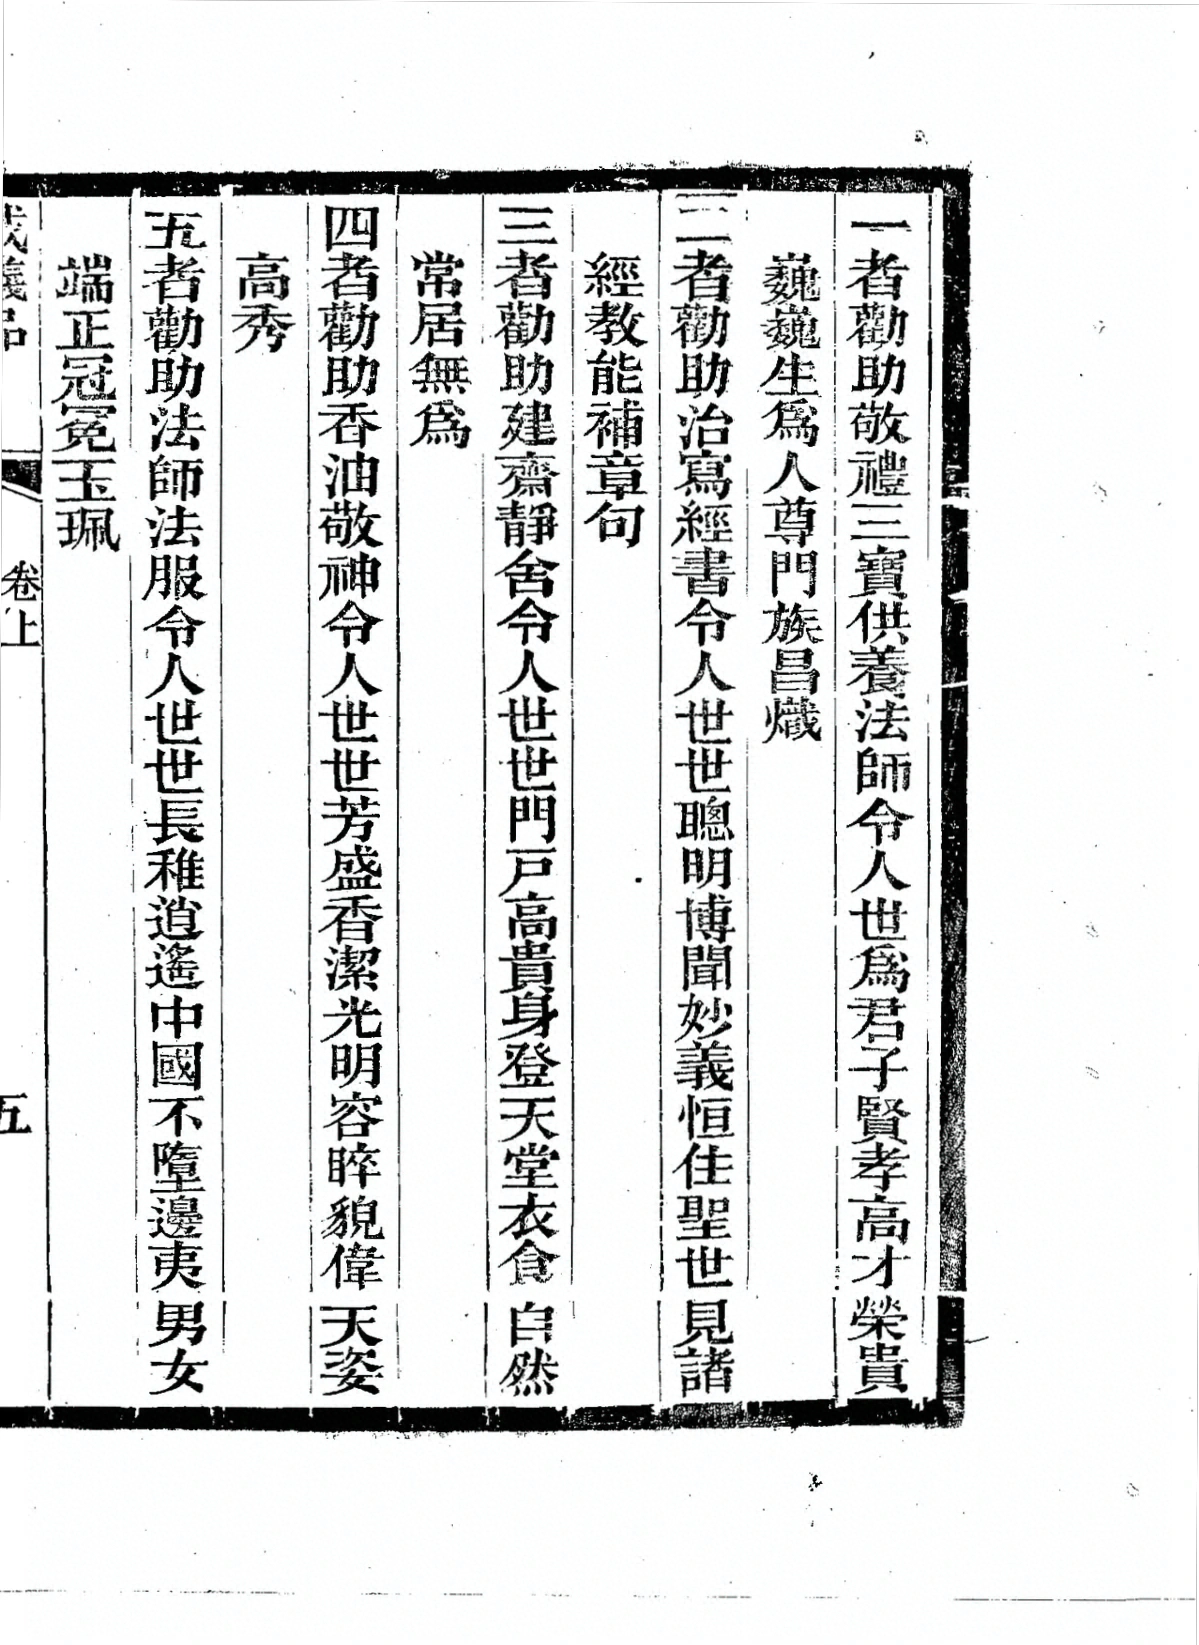 一者勸助敬禮三寶供養法師令人世爲君子賢孝高才榮貴
巍巍生爲人尊門族昌熾
二者勸助治寫經書令人世世聰明博聞妙義恒住聖世見諸
經教能補章句
三者勸助建齋靜舍令人世世門戸高貴身登天堂衣食自然
常居無爲
四者勸助香油敬神令人世世芳盛香潔光明容睟貌偉天姿
高秀
五者勸助法師法服令人世世長稚逍遙中國不墮邊夷男女
端正冠冕玉珮
卷上
五